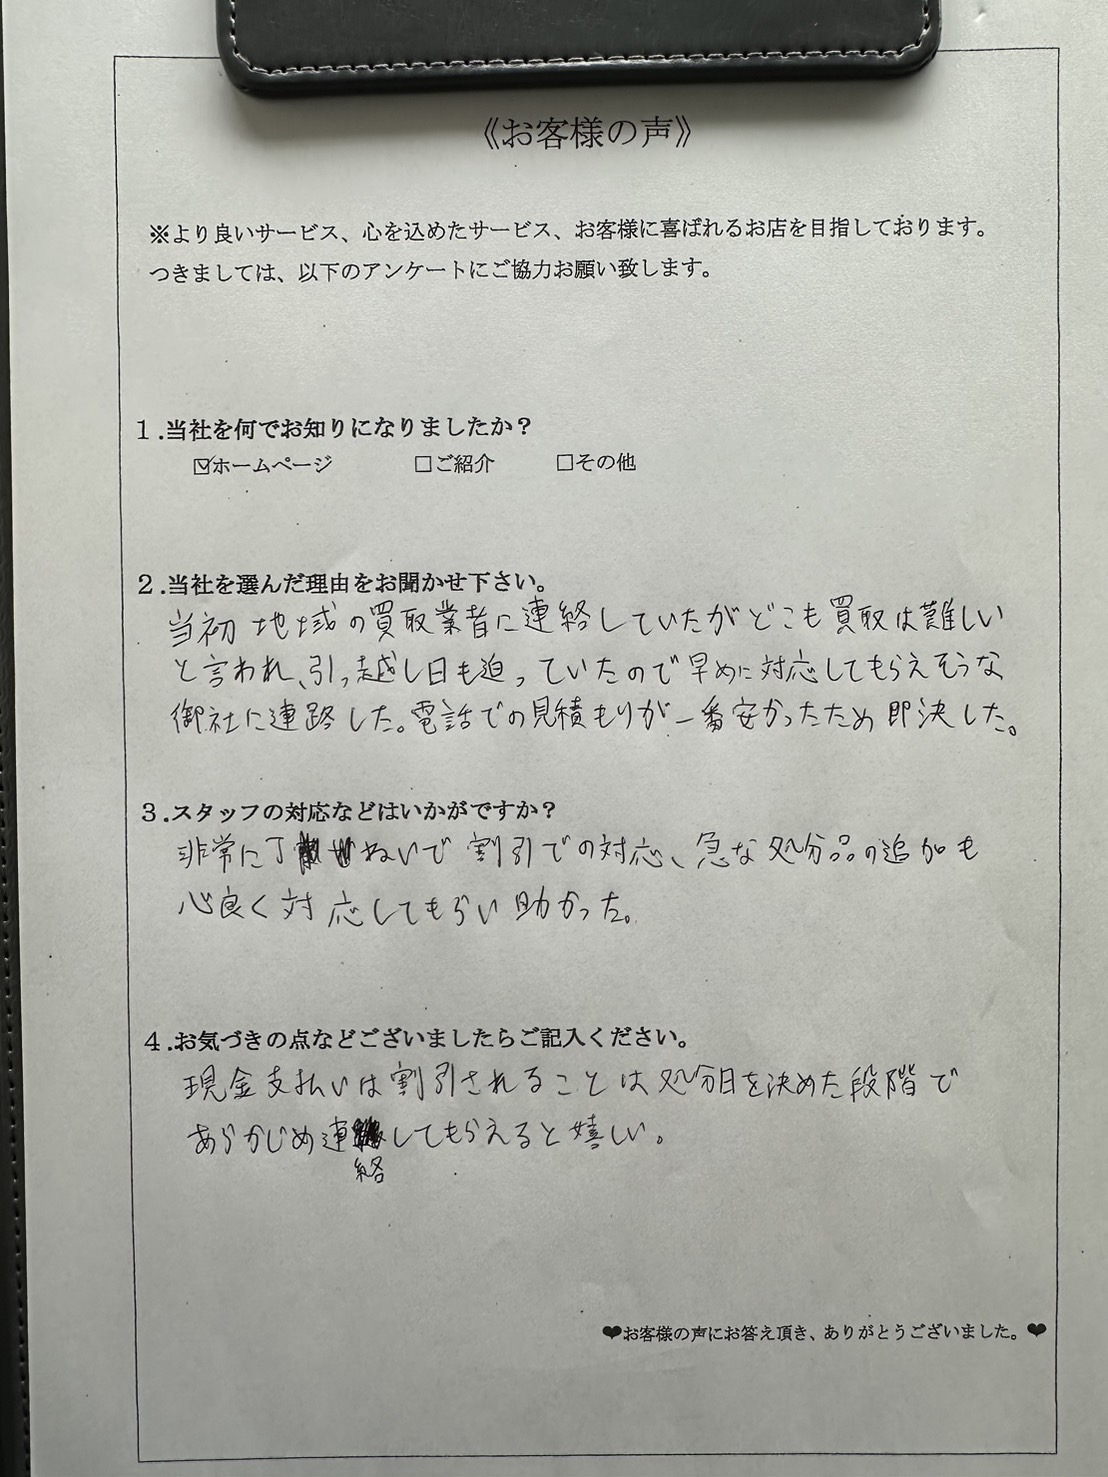 《お客様の声》
※より良いサービス、心を込めたサービス、お客様に喜ばれるお店を目指しております。
つきましては、以下のアンケートにご協力お願い致します。
1.当社を何でお知りになりましたか?
☑ホームページ □ご紹介 □その他
2.当社を選んだ理由をお聞かせ下さい。
当初地域の買取業者に連絡していたがどこも買取は難しい
と言われ、引っ越し日も迫っていたので早めに対応してもらえそうな
御社に連絡した。電話での見積もりが一番安かったため即決した。
3.スタッフの対応などはいかがですか?
非常に丁ねいで割引での対応、急な処分品の追加も
心良く対応してもらい助かった。
4.お気づきの点などございましたらご記入ください。
現金支払いは割引されることは処分日を決めた段階で
あらかじめ連絡してもらえると嬉しい。
❤お客様の声にお答え頂き、ありがとうございました。❤